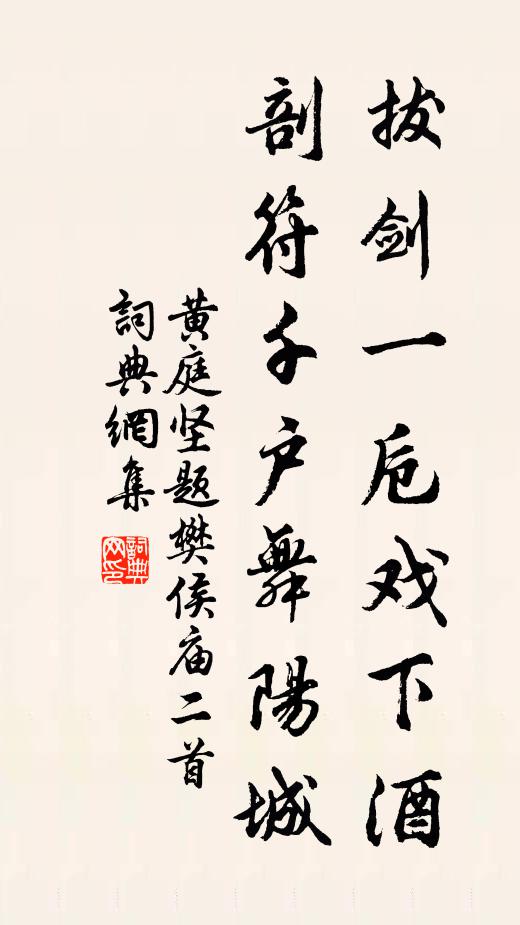 拔剑一卮戏下酒
剖符千户舞陽城
黄庭坚题樊侯庙二首
詞典網集
詞典网印